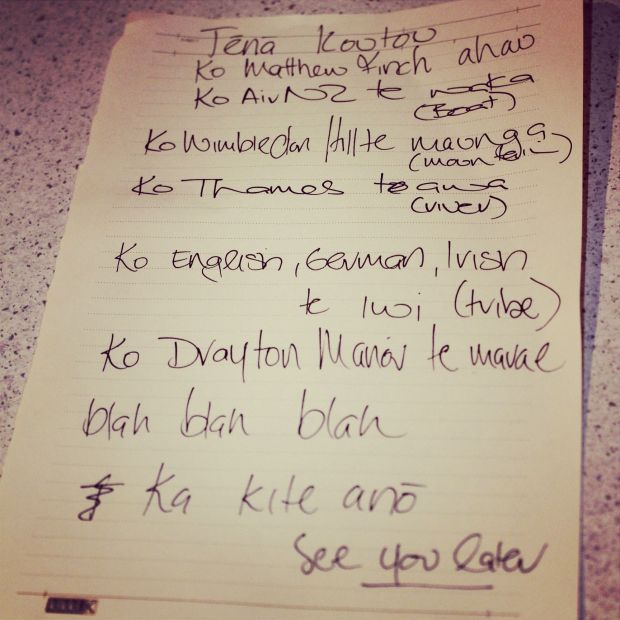 Tēnā Koutou
Ko Matthew Finch ahau
Ko Air NZ te waka
(Boat)
Ko Wimbledon Hill te maunga
(mountain)
Ko Thames te awa
(river)
Ko English, German, Irish
te Iwi (tribe)
Ko Drayton Manor te marae
blah blah blah
Ka kite anō
See you later